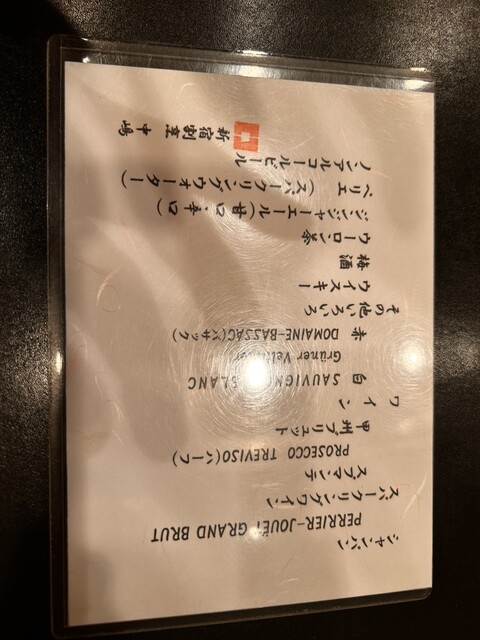 シャンパン
PERRIER-JOUËT GRAND BRUT
スパークリングワイン
スプマンテ
PROSECCO TREVISO(ハーフ)
甲州ブリュット
ワイン
白 SAUVIGNON BLANC
Grüner
赤 DOMAINE-BASSAC(バサック)
その他いろいろ
ウイスキー
梅酒
ウーロン茶
ジンジャーエール(甘口・辛口)
ペリエ (スパークリングウォーター)
ノンアルコールビール
新宿割烹 中嶋